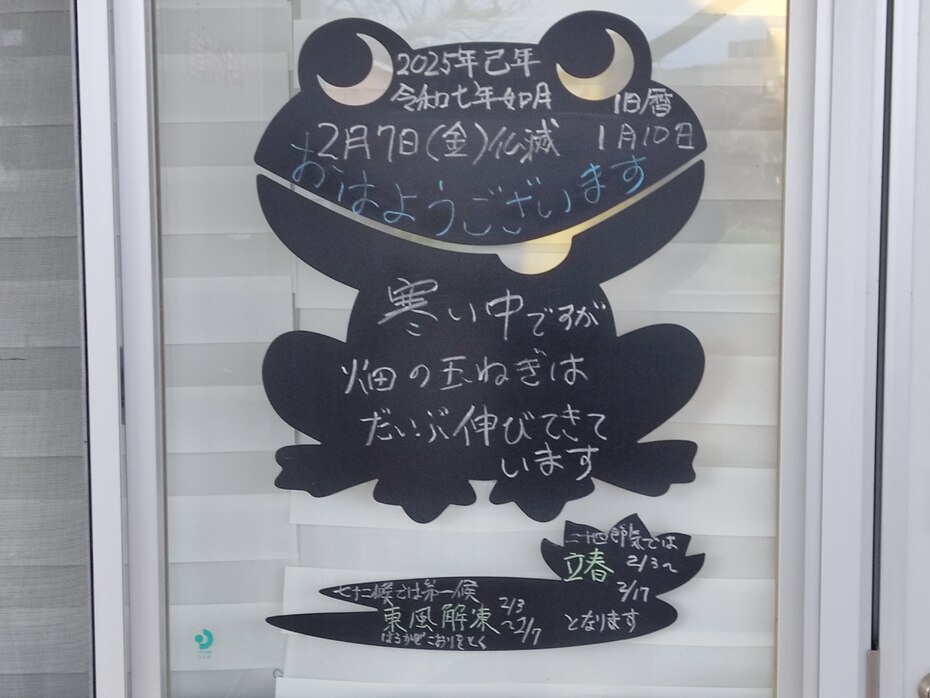 2025年己年
令和七年如月
旧暦
2月7日(金)仏滅
1月10日
おはようございます
寒い中ですが
畑の玉ねぎは
だいぶ伸びてきて
います
二十四節気では
立春 2/3~
2/17
となります
七十二候では第一候
東風解凍 2/3
~2/7
はるかぜこおりをとく